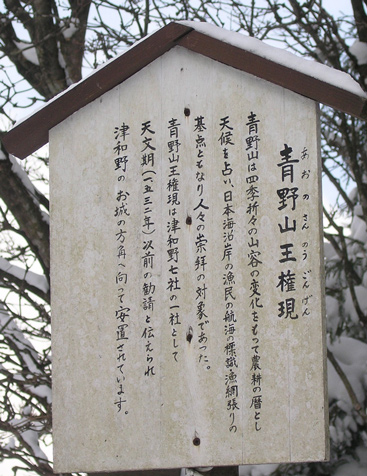 あおのさんのうごんげん
青野山王権現
青野山は四季折々の山容の変化をもって農耕の暦とし
天候を占い、日本海沿岸の漁民の航海の標識漁網張りの
基点ともなり人々の崇拝の対象であった。
青野山王権現は津和野七社の一社として
天文期(一五三二年)以前の勧請と伝えられ
津和野のお城の方角へ向って安置されています。